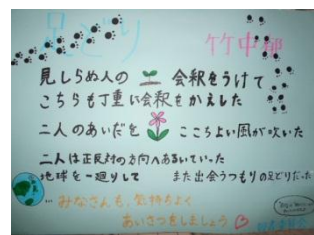 足どり
竹中郁
見しらぬ人の 会釈をうけて
こちらも丁重に会釈をかえした
二人のあいだを ここちよい風が吹いた
二人は正反対の方向へあるいていった
地球を一廻りして また出会うつもりの足どりだった
…みなさんも、気持ちよく
あいさつをしましょう